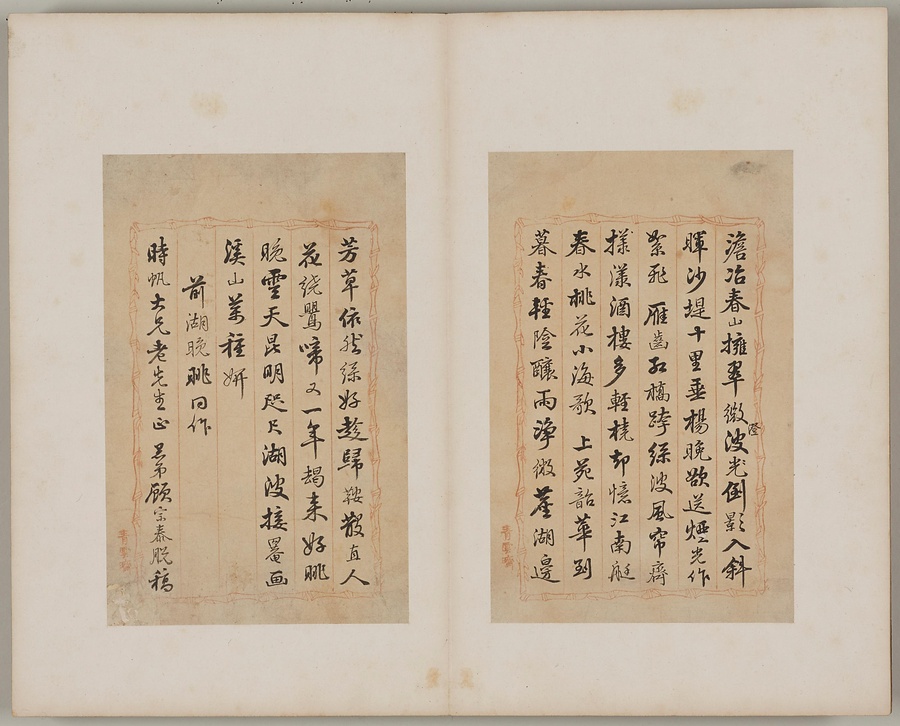 澹冶春山擁翠微波光倒影入斜
澄
暉沙堤十里垂楊晚欲送煙光作
絮飛 雁齒紅橋跨綠波風帘齊
樣漾酒樓多輕橈却憶江南艇
春水桃花小海歌 上苑韶華到
暮春輕陰釀雨淨微塵湖邊
芳草依然綠好趁歸鞍散直人
花繞鸎啼又一年朅來好眺
晚雲天昆明咫尺湖波接罨画
溪山萬種妍
前湖晚眺同作
時帆大兄老先生正 弟顧宗泰脫稿